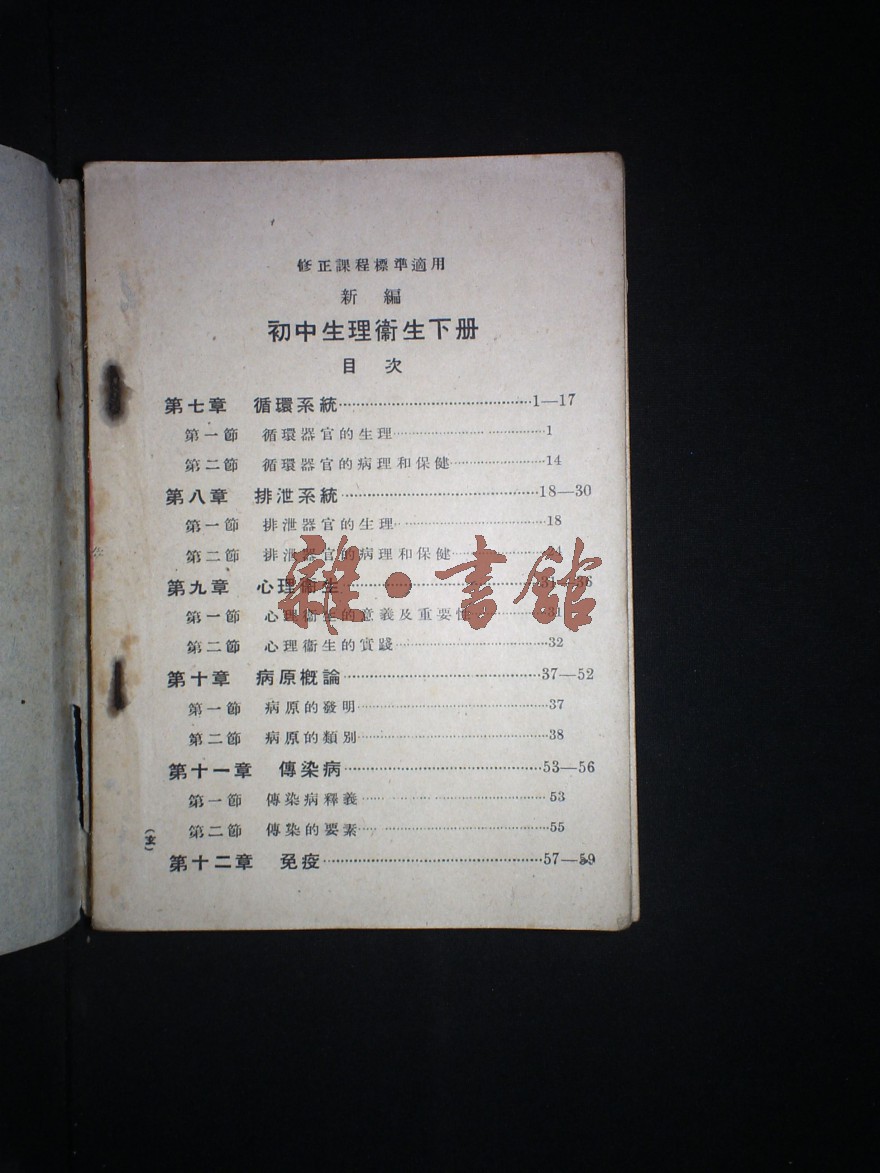 修正課程標準適用
新編
初中生理衞生下册
目次
第七章 循環系統……1—17
第一節 循環器官的生理……1
第二節 循環器官的病理和保健……14
第八章 排泄系統……18—30
第一節 排泄器官的生理……18
第二節 排泄器官的病理和保健……
第九章 心理衞生……31—36
第一節 心理衞生的意義及重要性……31
第二節 心理衞生的實踐……32
第十章 病原槪論……37—52
第一節 病原的發明……37
第二節 病原的類別……38
第十一章 傳染病……53—56
第一節 傳染病釋義……53
第二節 傳染的要素……55
第十二章 免疫……57—59
(玄)
雜·書館